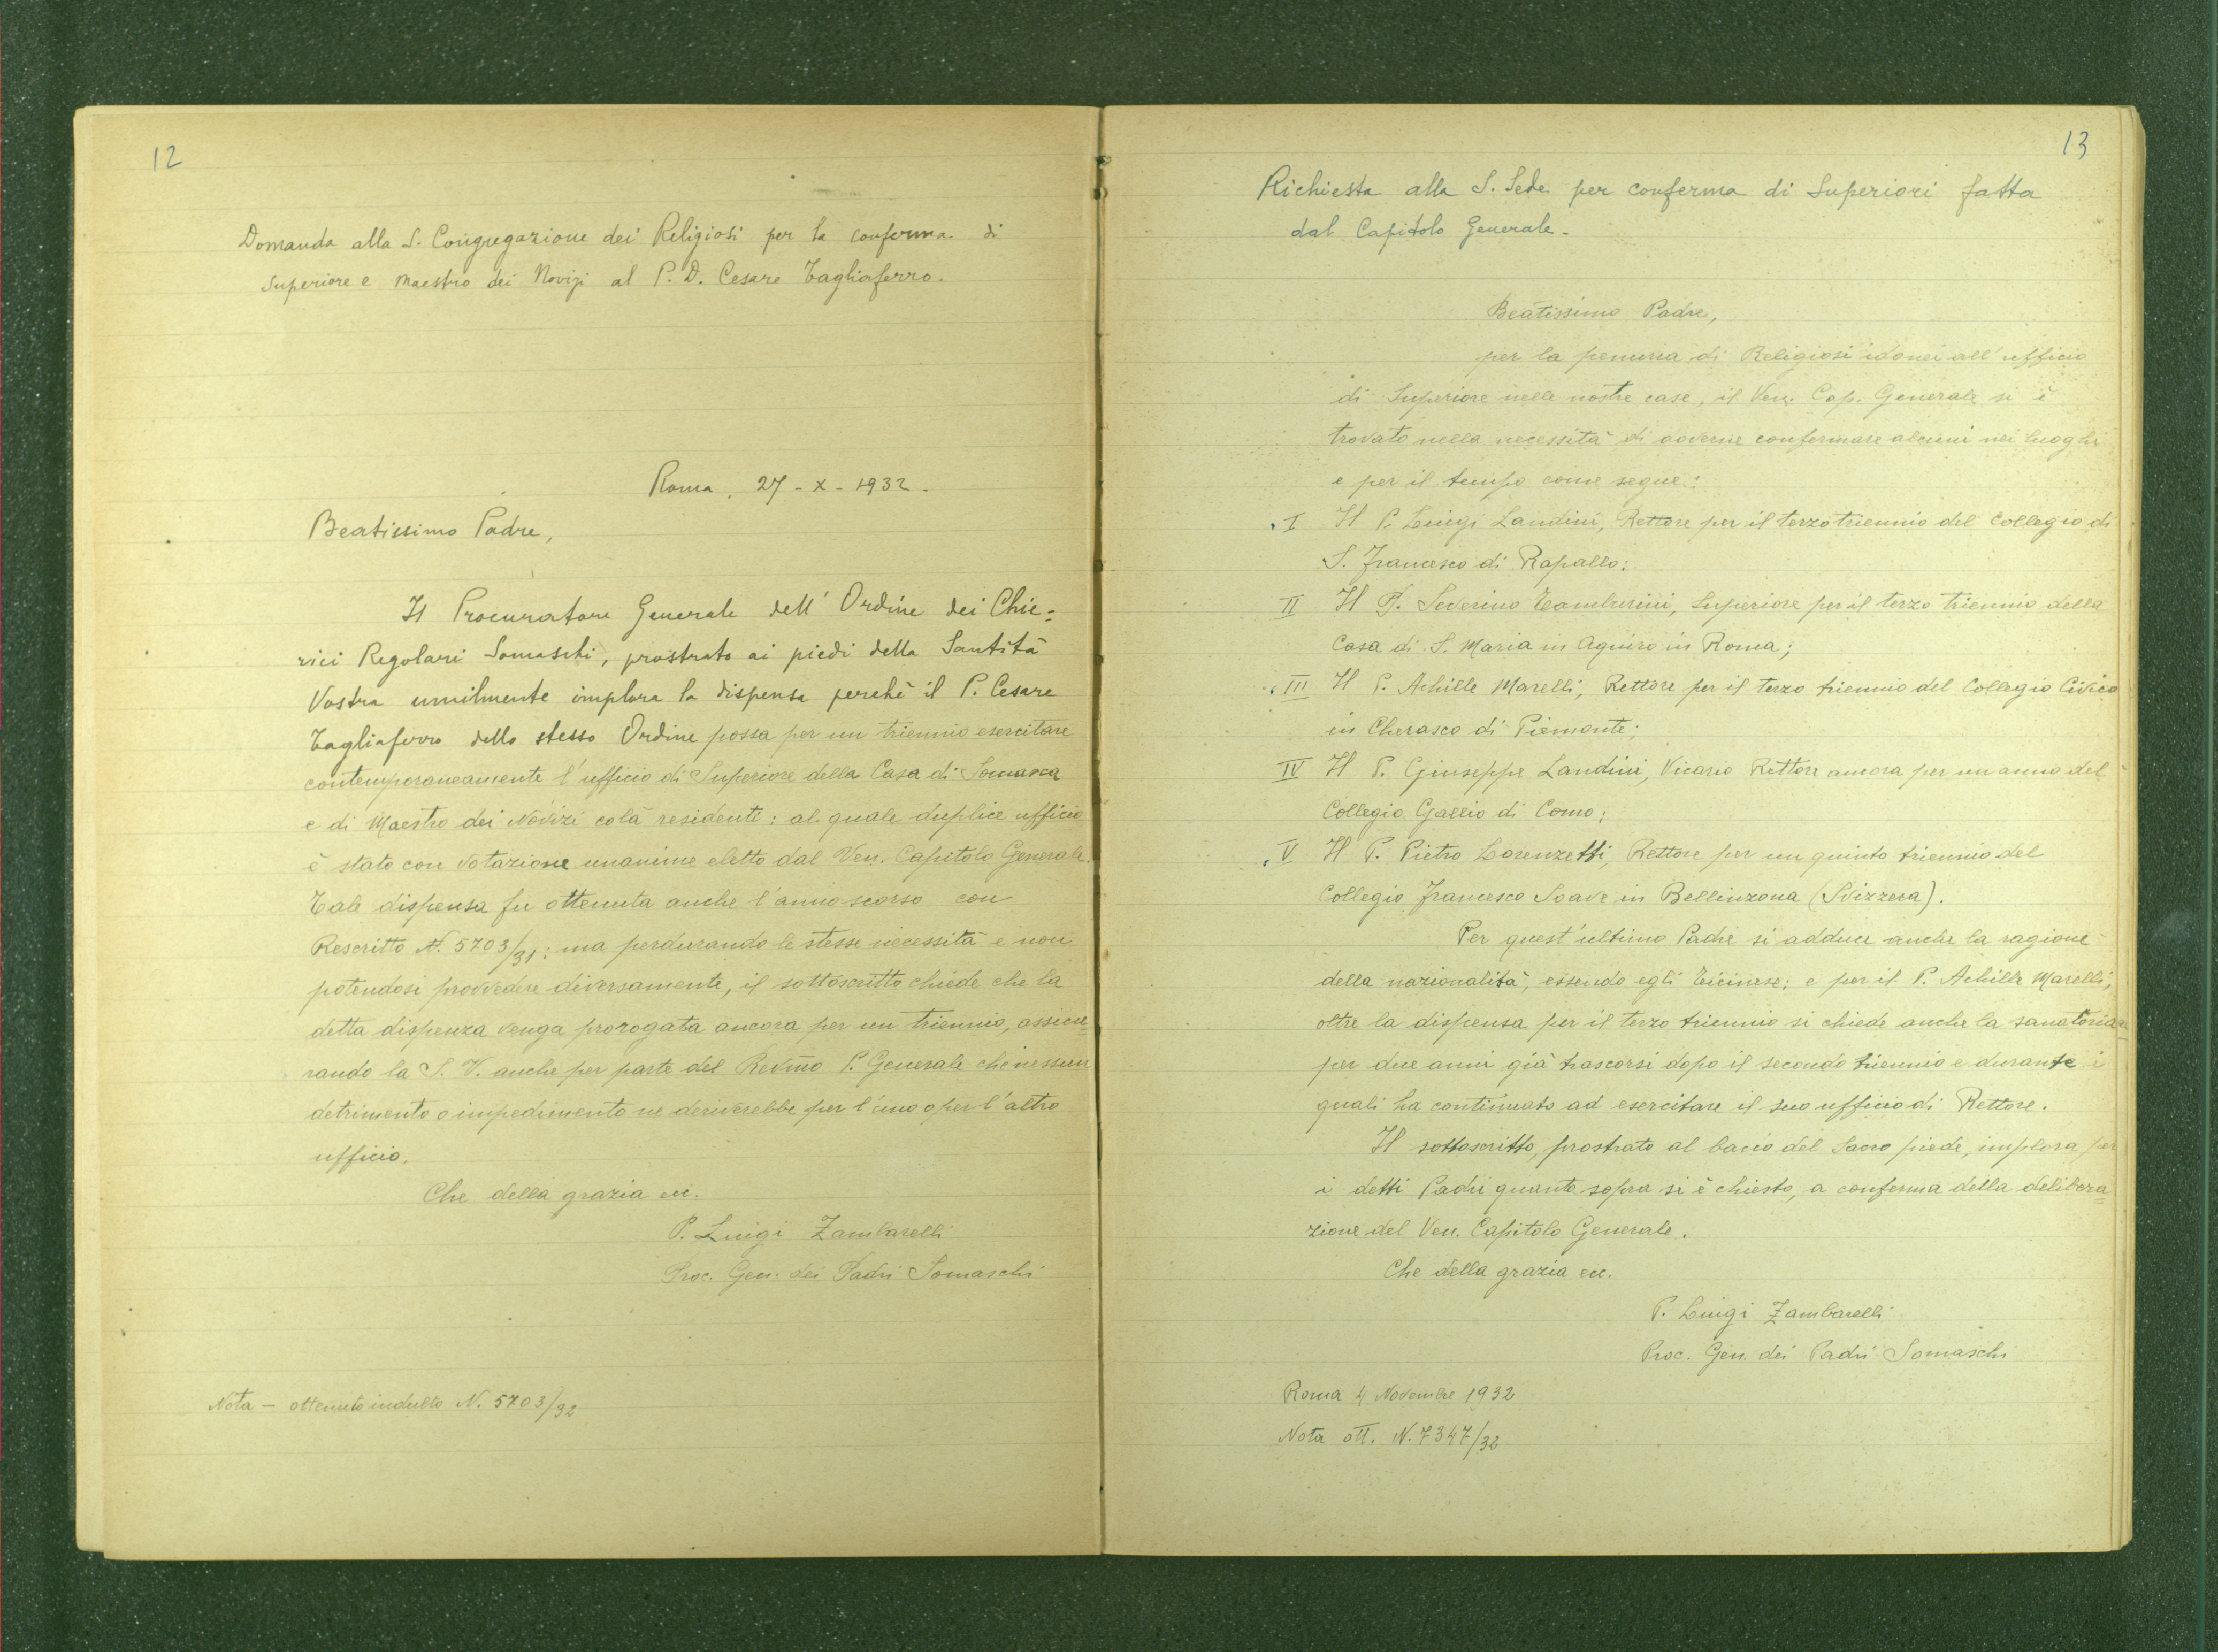 12
Domanda alla S. Congregazione dei Religiosi per la conferma di
Superiore e Maestro dei Novizi al P. D. Cesare Tagliaferro.
Roma, 27 - X - 1932.
Beatissimo Padre,
Il Procuratore Generale dell' Ordine dei Chie=
rici Regolari Somaschi, prostrato ai piedi della Santità
Vostra umilmente implora la dispensa perchè il P. Cesare
Tagliaferro dello stesso Ordine possa per un triennio esercitare
contemporaneamente l'ufficio di Superiore della Casa di Somasca
e di Maestro dei Novizi colà residenti: al quale duplice ufficio
è stato con votazione unanime eletto dal Ven. Capitolo Generale.
Tale dispensa fu ottenuta anche l'anno scorso con
Rescritto N. 5703/31: ma perdurando le stesse necessità e non
potendosi provvedere diversamente, il sottoscritto chiede che la
detta dispenza venga prorogata ancora per un triennio, assicu
rando la S. V. anche per parte del Rev̅mo P. Generale che nessun
detrimento o impedimento ne deriverebbe per l'uno o per l'altro
ufficio.
Che della grazia ecc.
P. Luigi Zambarelli
Proc. Gen. dei Padri Somaschi
Nota - ottenuto indulto N. 5703/32
13
Richiesta alla S. Sede per conferma di Superiori fatta
dal Capitolo Generale.
Beatissimo Padre,
per la penuria di Religiosi idonei all'ufficio
di Superiore nelle nostre case, il Ven. Cap. Generale si è
trovato nella necessità di doverne confermare alcuni nei luoghi
e per il tempo come segue:
I Il P. Luigi Landini, Rettore per il terzo triennio del Collegio di
S. Francesco di Rapallo:
II Il P. Severino Tamburini, Superiore per il terzo triennio della
Casa di S. Maria in Aquiro in Roma;
III Il P. Achille Marelli, Rettore per il terzo triennio del Collegio Civico
in Cherasco di Piemonte;
IV Il P. Giuseppe Landini, Vicario Rettore ancora per un anno del
Collegio Gallio di Como;
V Il P. Pietro Lorenzetti, Rettore per un quinto triennio del
Collegio Francesco Soave in Bellinzona (Svizzera).
Per quest'ultimo Padre si adduce anche la ragione
della nazionalità, essendo egli Ticinese; e per il P. Achille Marelli,
oltre la dispensa per il terzo triennio si chiede anche la sanatoria
per due anni già trascorsi dopo il secondo triennio e durante i
quali ha continuato ad esercitare il suo ufficio di Rettore.
Il sottoscritto, prostrato al bacio del Sacro piede, implora per
i detti Padri quanto sopra si è chiesto, a conferma della delibera=
zione del Ven. Capitolo Generale.
Che della grazia ecc.
P. Luigi Zambarelli
Proc. Gen. dei Padri Somaschi
Roma 4 Novembre 1932
Nota ott. N. 7347/32